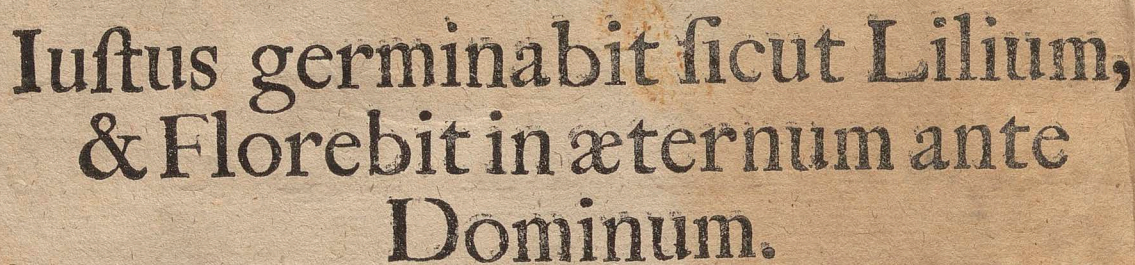 Iuſtus germinabit ſicut Lilium,
& Florebit in æternum ante
Dominum.